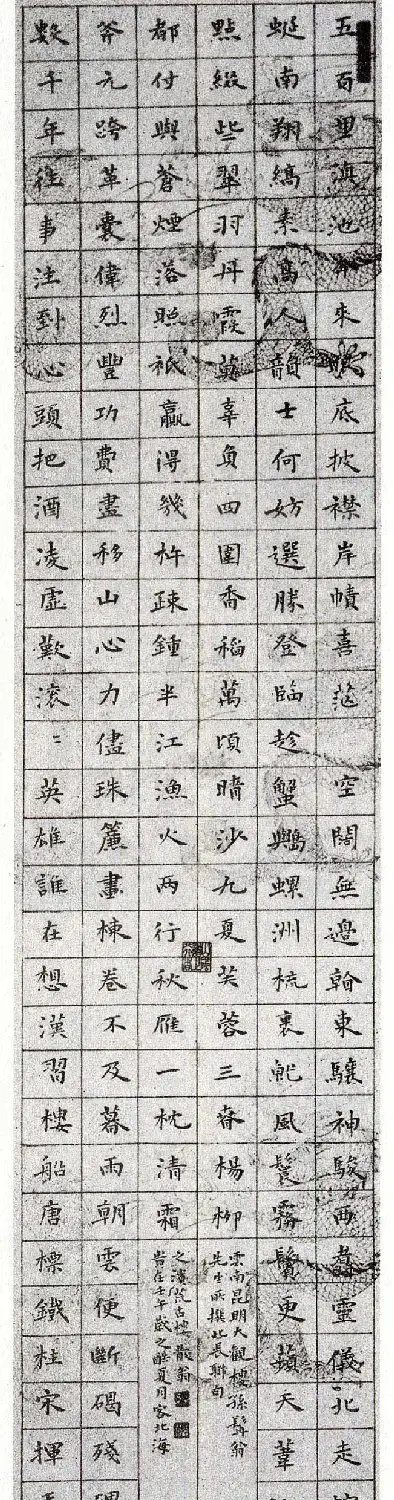 五百里滇池奔來眼底披襟岸幘喜茫空闊無邊看東驤神駿西翥靈儀北走
蜒南翔縞素高人韻士何妨選勝登臨趁蟹嶼螺洲梳裹就風鬟霧鬢更蘋天葦
點綴些翠羽丹霞莫辜負四圍香稻萬頃晴沙九夏芙蓉三春楊柳
數千年往事注到心頭把酒凌虛歎滾〻英雄誰在想漢習樓船唐標鐵柱宋揮
斧元跨革囊偉烈豐功費盡移山心力儘珠簾畫棟卷不及暮雨朝雲便斷碣殘碑
都付與蒼煙落照祇贏得幾杵疎鍾半江漁火兩行秋雁一枕清霜
雲南昆明大觀樓孫髯翁
先生所撰此長聯句
壬午歲之月客北海